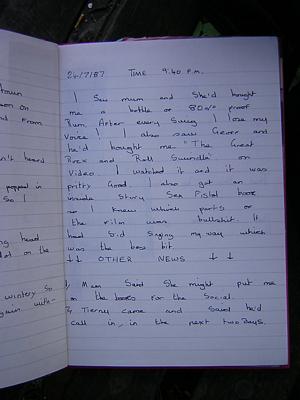 town
24/7/87 TIME 9:40 P.M.
I Saw mum and She'd bought
me a bottle of 80% proof
Rum. After every Swig I lose my
Voice! I also saw Geoff and
he'd bought me "The Great
Rock and Roll Swindle" on
Video. I watched it and it was
pritty Good. I also got an
inside Story Sex Pistol book
so I knew which parts of
the film was bullshit. It
had Sid Singing my way which
was the best bit.
↓↓ OTHER NEWS ↓ ↓
Mam Said She might put me
on the books for the Social.
Tierny came and said he'd
call in, in the next two Days.
from
n't heard
popped in
So I
head
on the
wintery So
again with-